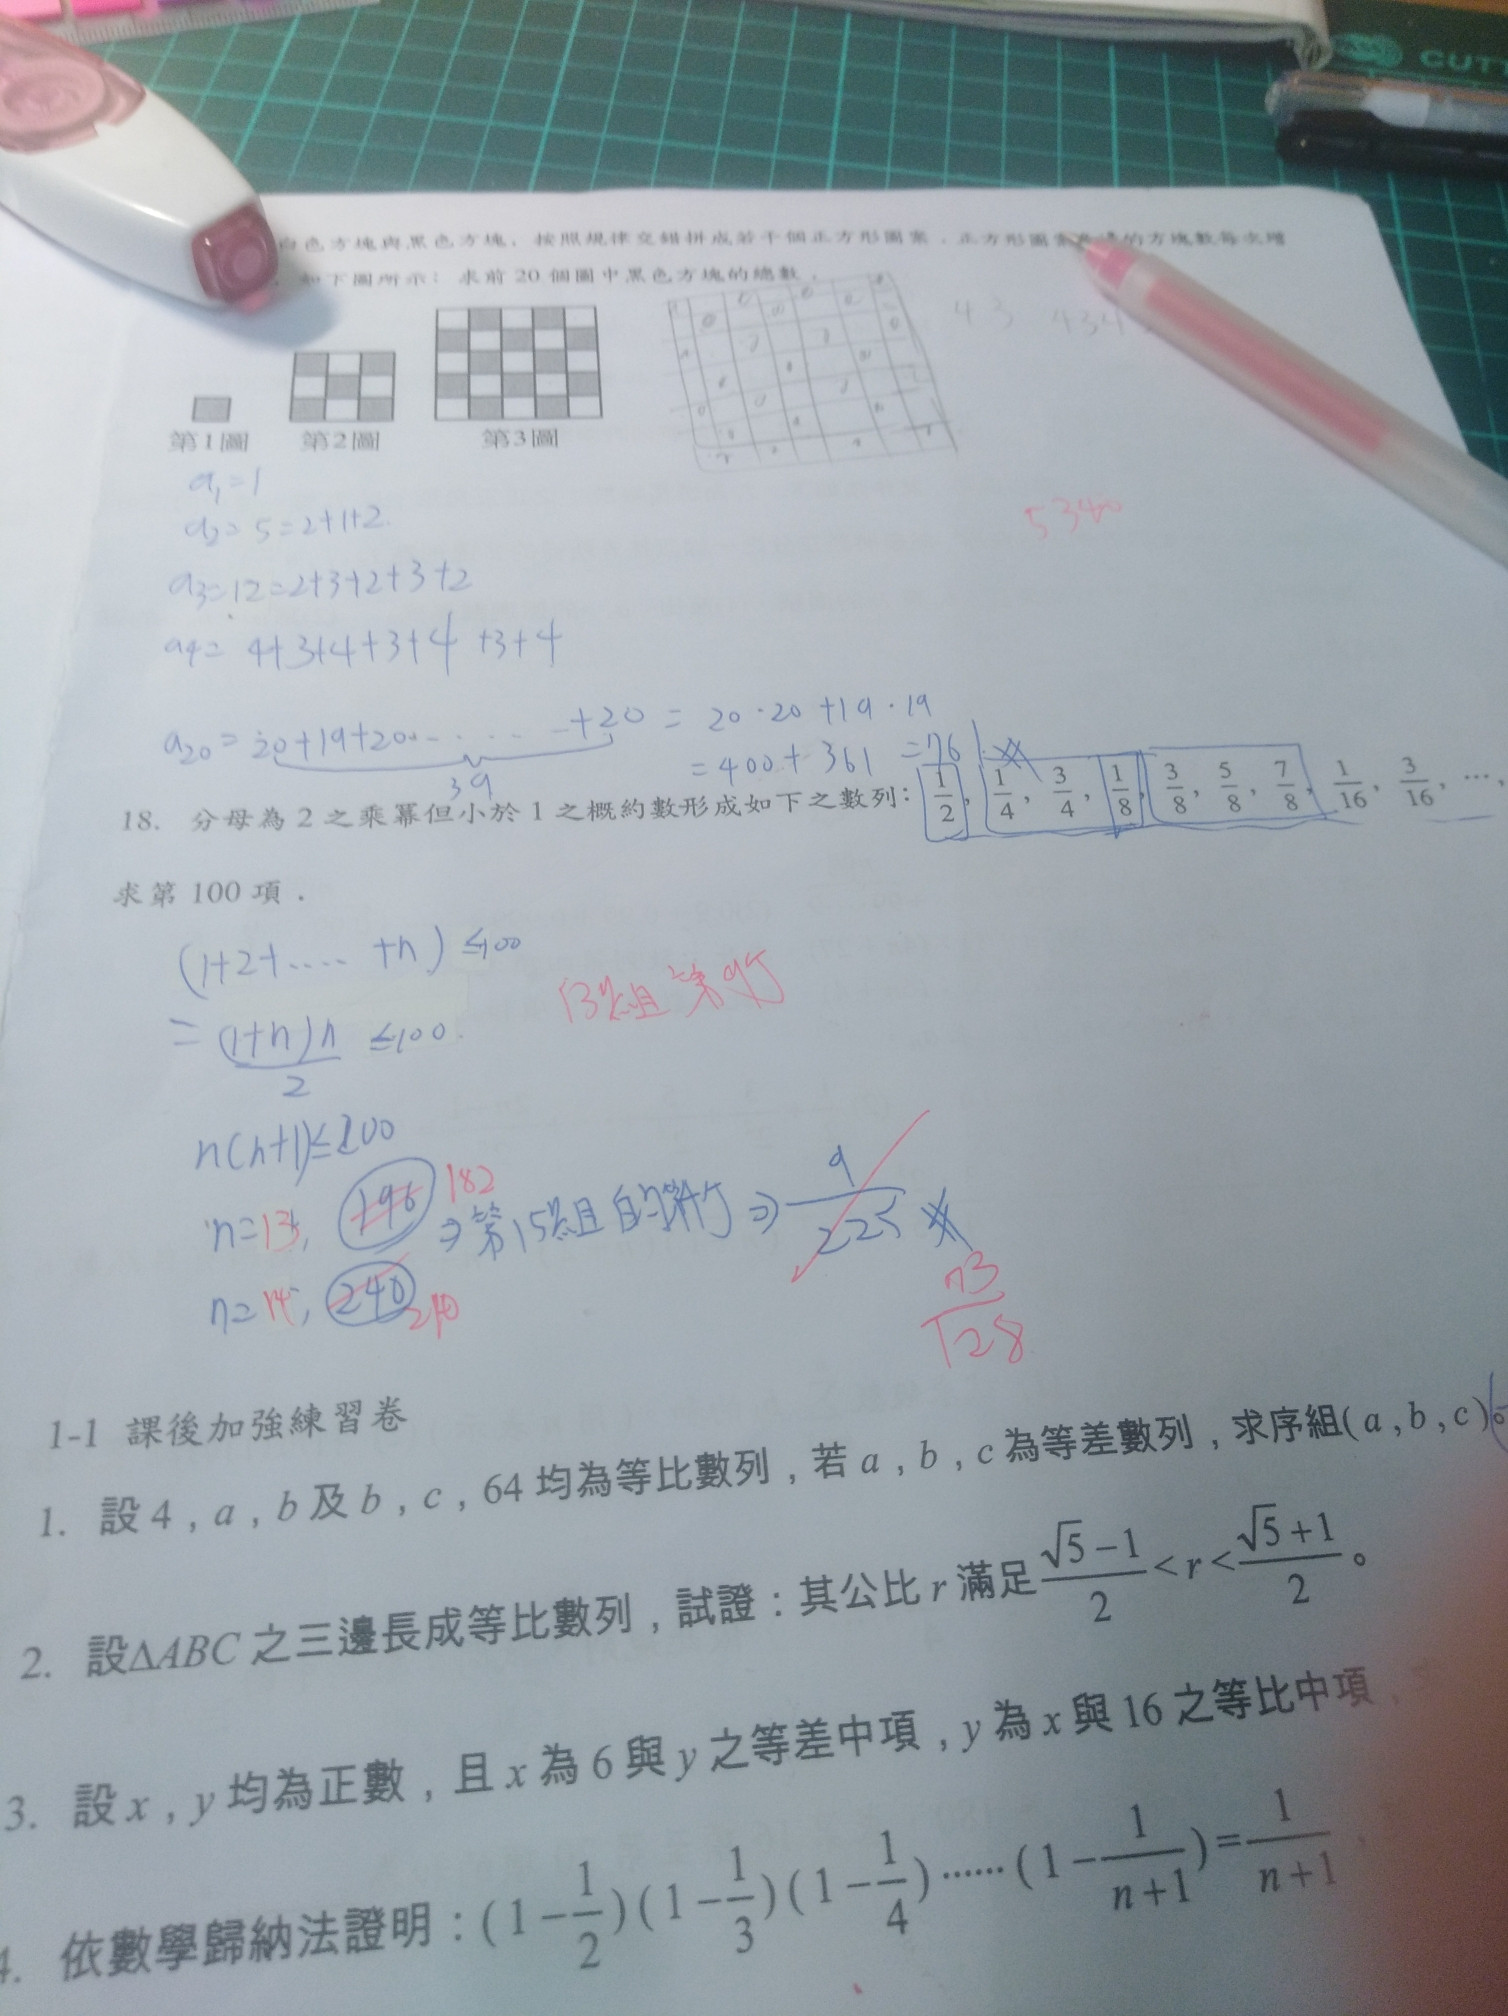 CUTT
白色方塊與黑色方塊，按照規律交錯拼成若干個正方形圖案，正方形圖案的方塊數每次增
，如下圖所示：求前 20 個圖中黑色方塊的總數．
43 434
第1圖 第2圖 第3圖
a₁=1
a₂=5=2+1+2
5340
a₃=12=2+3+2+3+2
a₄= 4+3+4+3+4+3+4
a₂₀=20+19+20......+20 = 20·20+19·19
39
=400+361=761
18. 分母為 2 之乘冪但小於 1 之概約數形成如下之數列：1/2, 1/4, 3/4, 1/8, 3/8, 5/8, 7/8, 1/16, 3/16, …,
求第 100 項．
(1+2+....+n)≤100
13組第9個
=(1+n)n/2 ≤100
n(n+1)≤200
n=13, 196 182 ⇒第15組的第9個⇒ 9/225
n=14, 240 210
73/128
1-1 課後加強練習卷
1. 設 4 , a , b 及 b , c , 64 均為等比數列，若 a , b , c 為等差數列，求序組( a , b , c )
2. 設ΔABC 之三邊長成等比數列，試證：其公比 r 滿足 (√5−1)/2 < r < (√5+1)/2。
3. 設 x , y 均為正數，且 x 為 6 與 y 之等差中項，y 為 x 與 16 之等比中項，
4. 依數學歸納法證明：(1−1/2)(1−1/3)(1−1/4)······(1−1/(n+1))=1/(n+1)